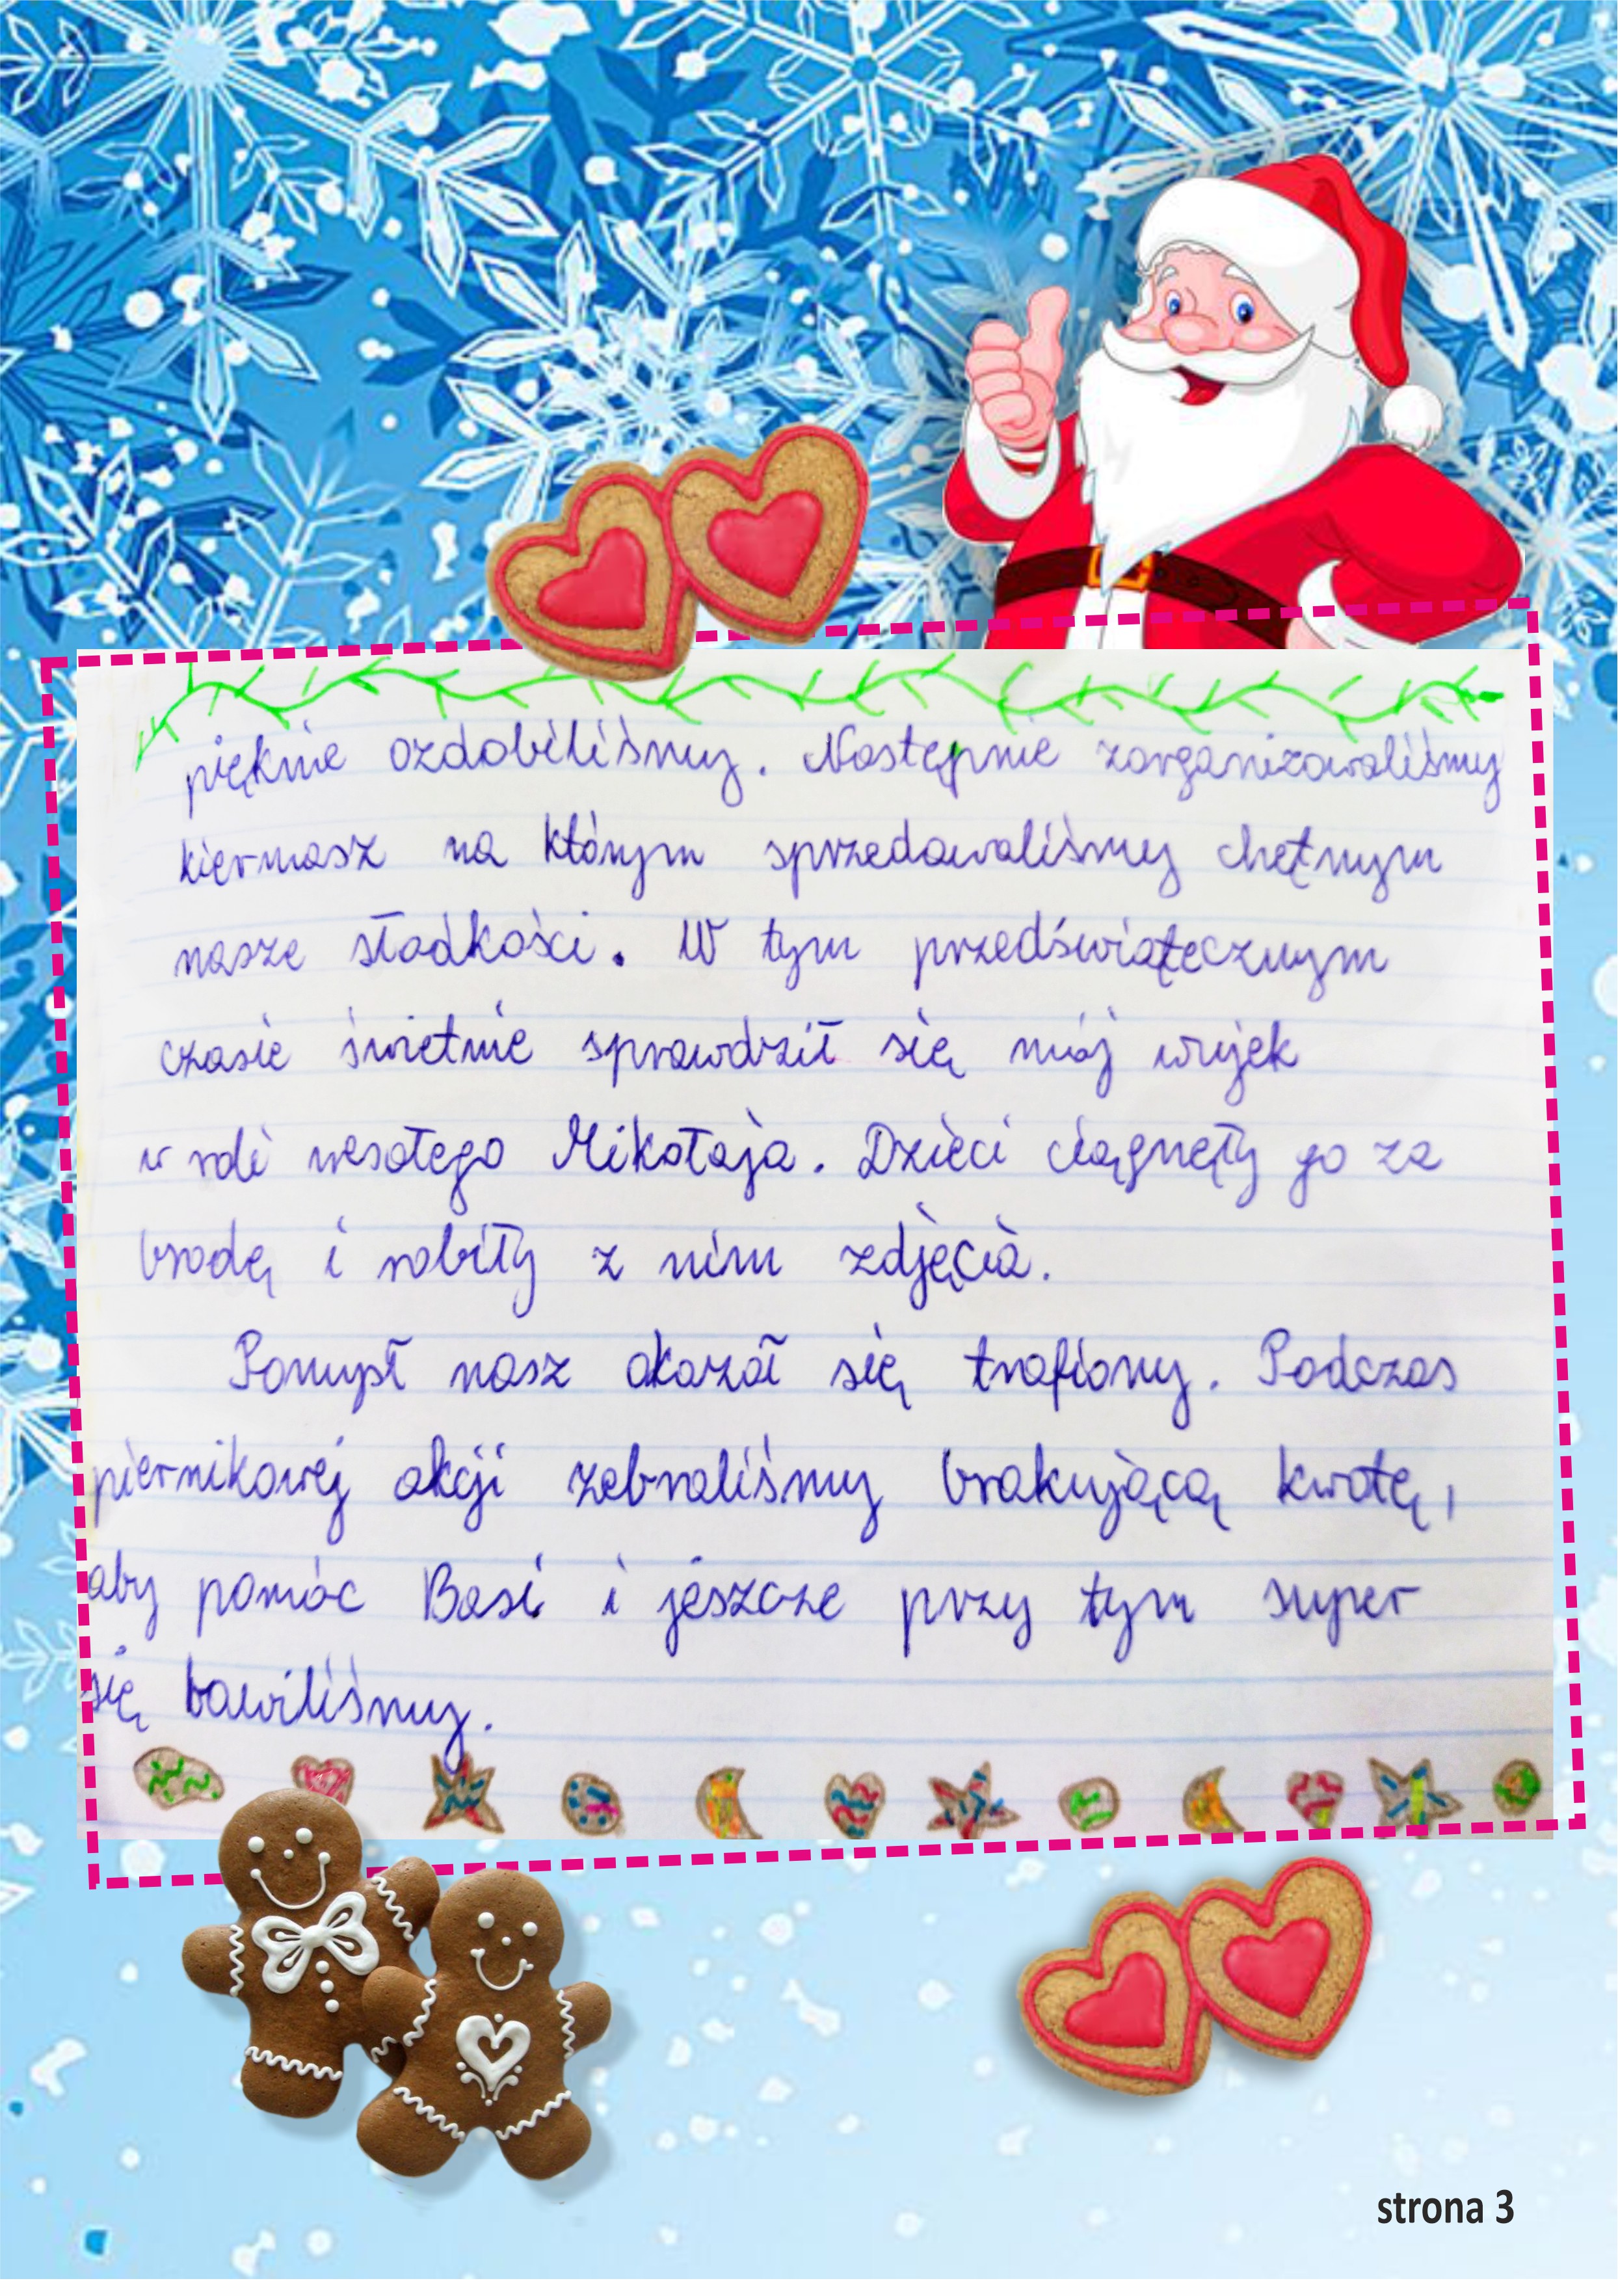 pięknie ozdobiliśmy. Następnie zorganizowaliśmy
kiermasz na którym sprzedawaliśmy chętnym
nasze słodkości. W tym przedświątecznym
czasie świetnie sprawdził się mój wujek
w roli wesołego Mikołaja. Dzieci ciągnęły go za
brodę i robiły z nim zdjęcia.
Pomysł nasz okazał się trafiony. Podczas
piernikowej akcji zebraliśmy brakującą kwotę,
aby pomóc Basi i jeszcze przy tym super
się bawiliśmy.
strona 3